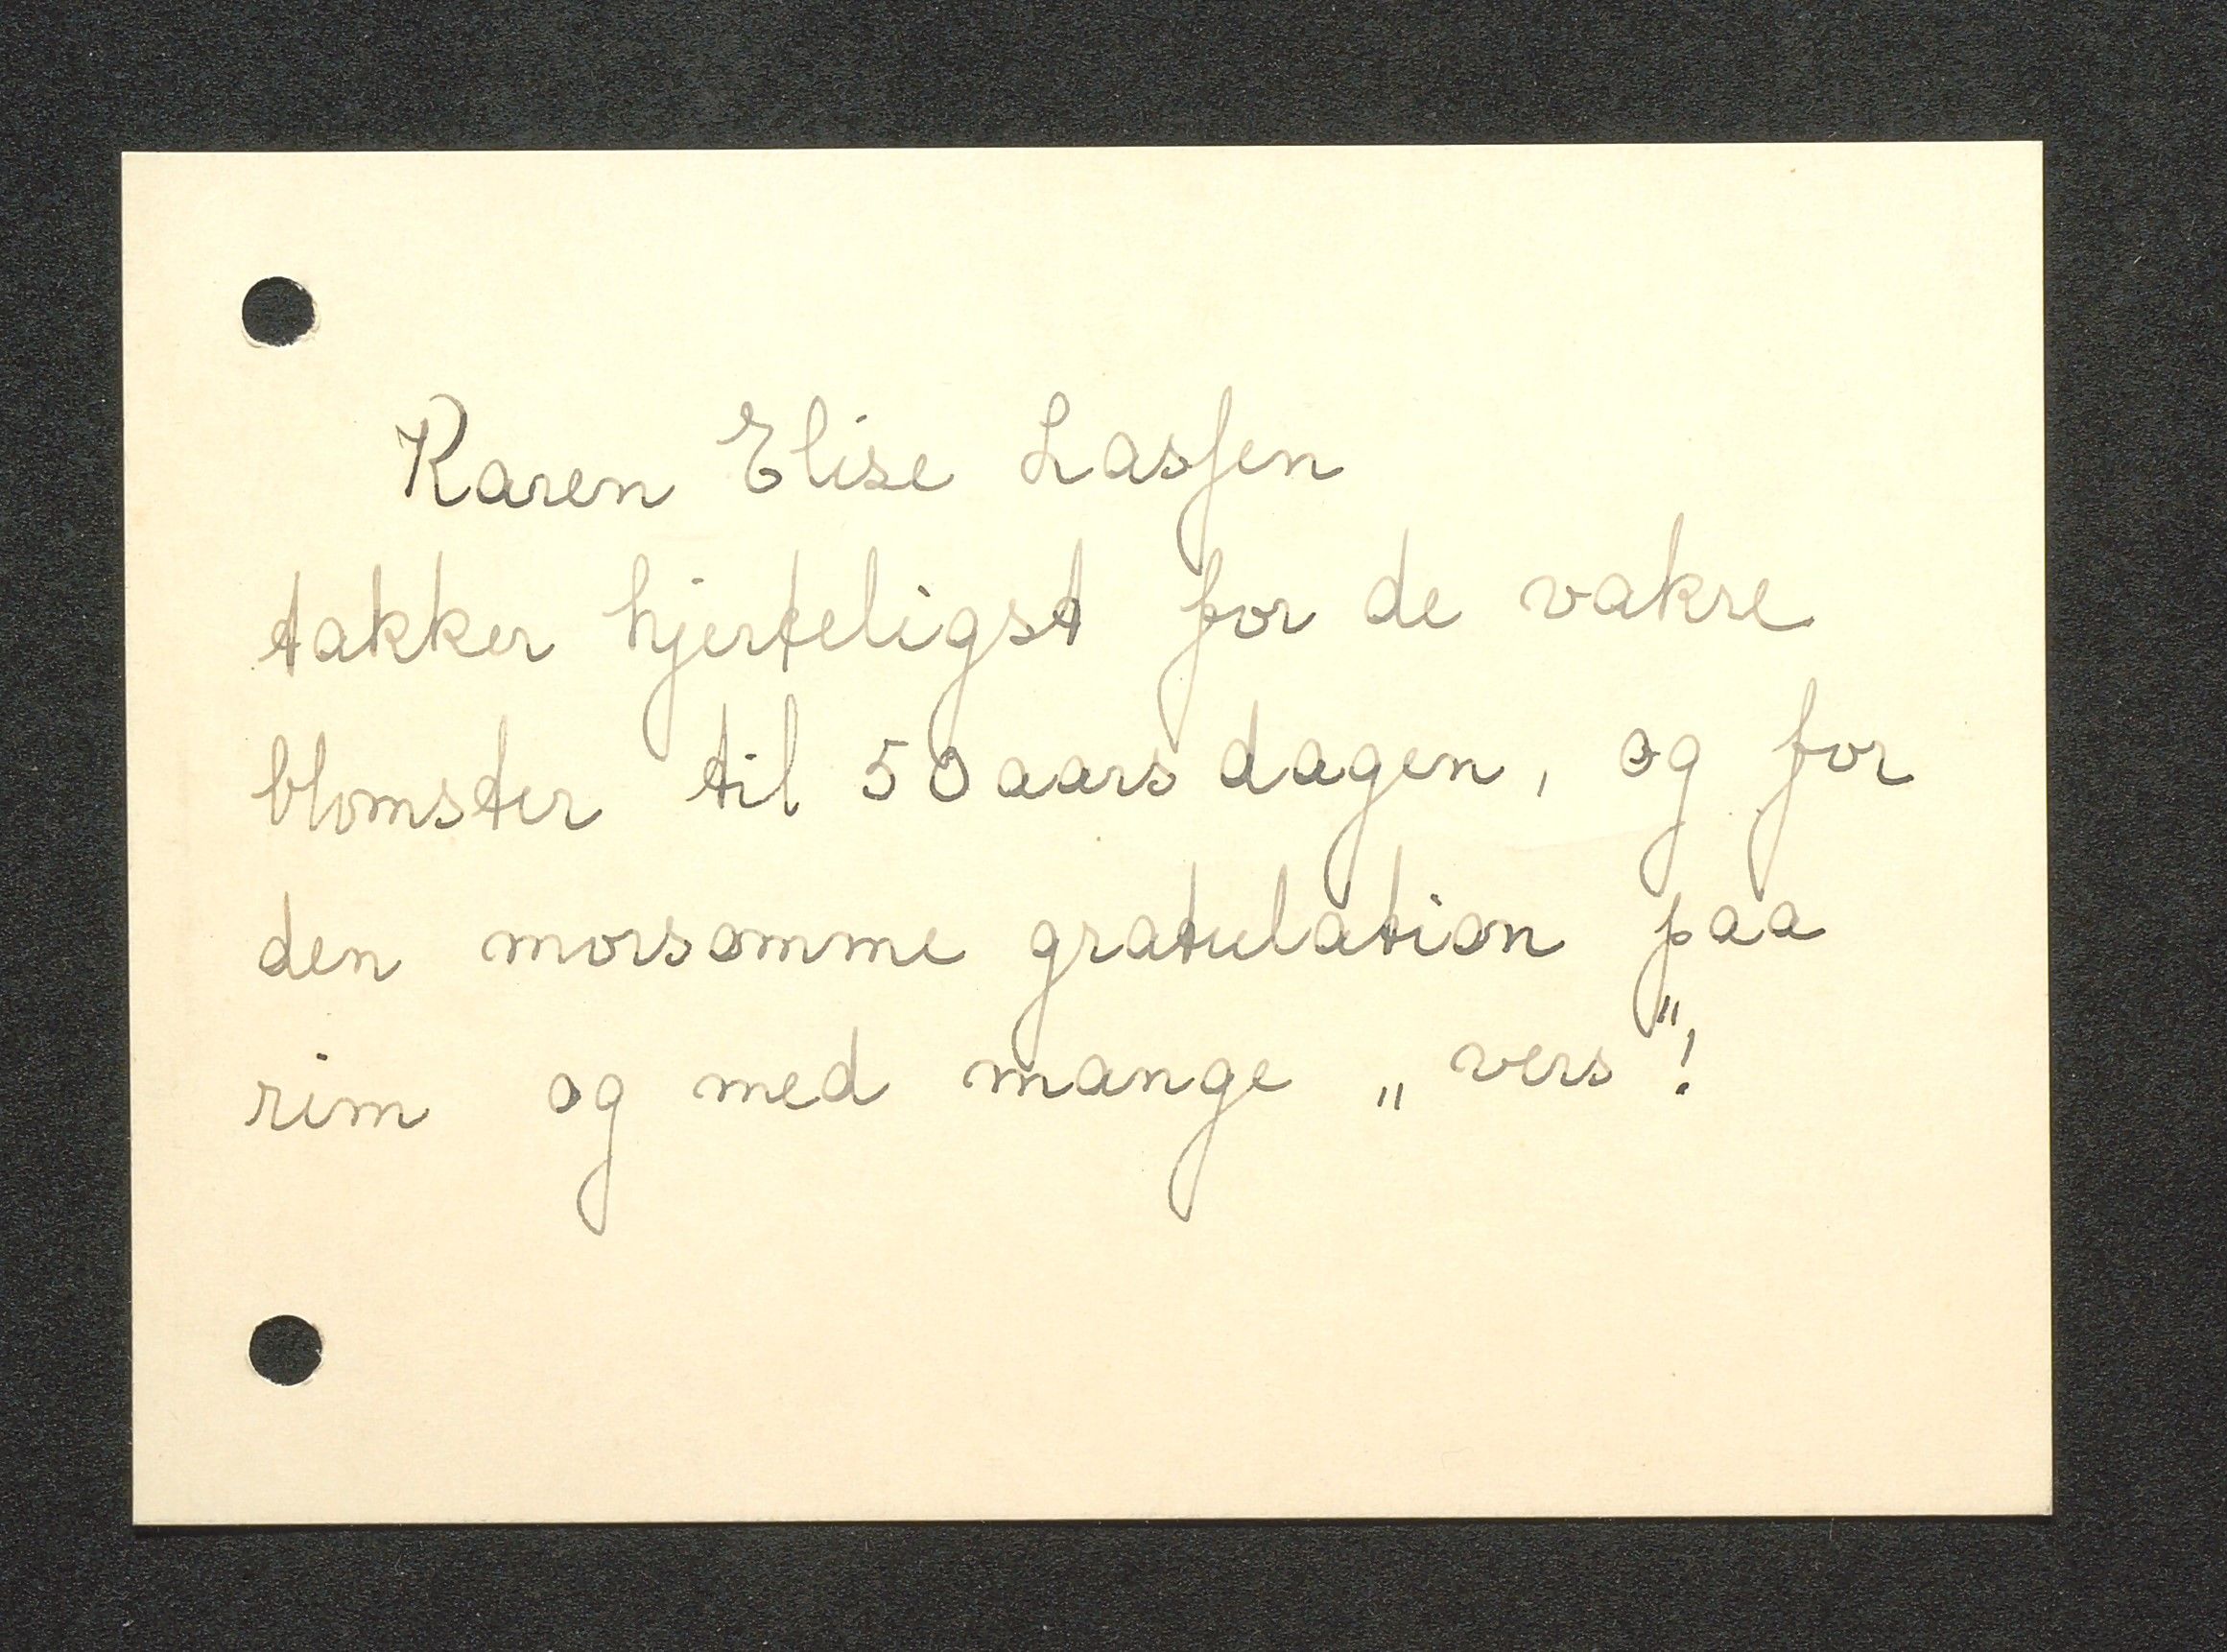 Karen Elise Lasſen
takker hjerteligst for de vakre
blomster til 50aarsdagen, og for
den morsomme gratulation paa
rim og med mange „vers"!